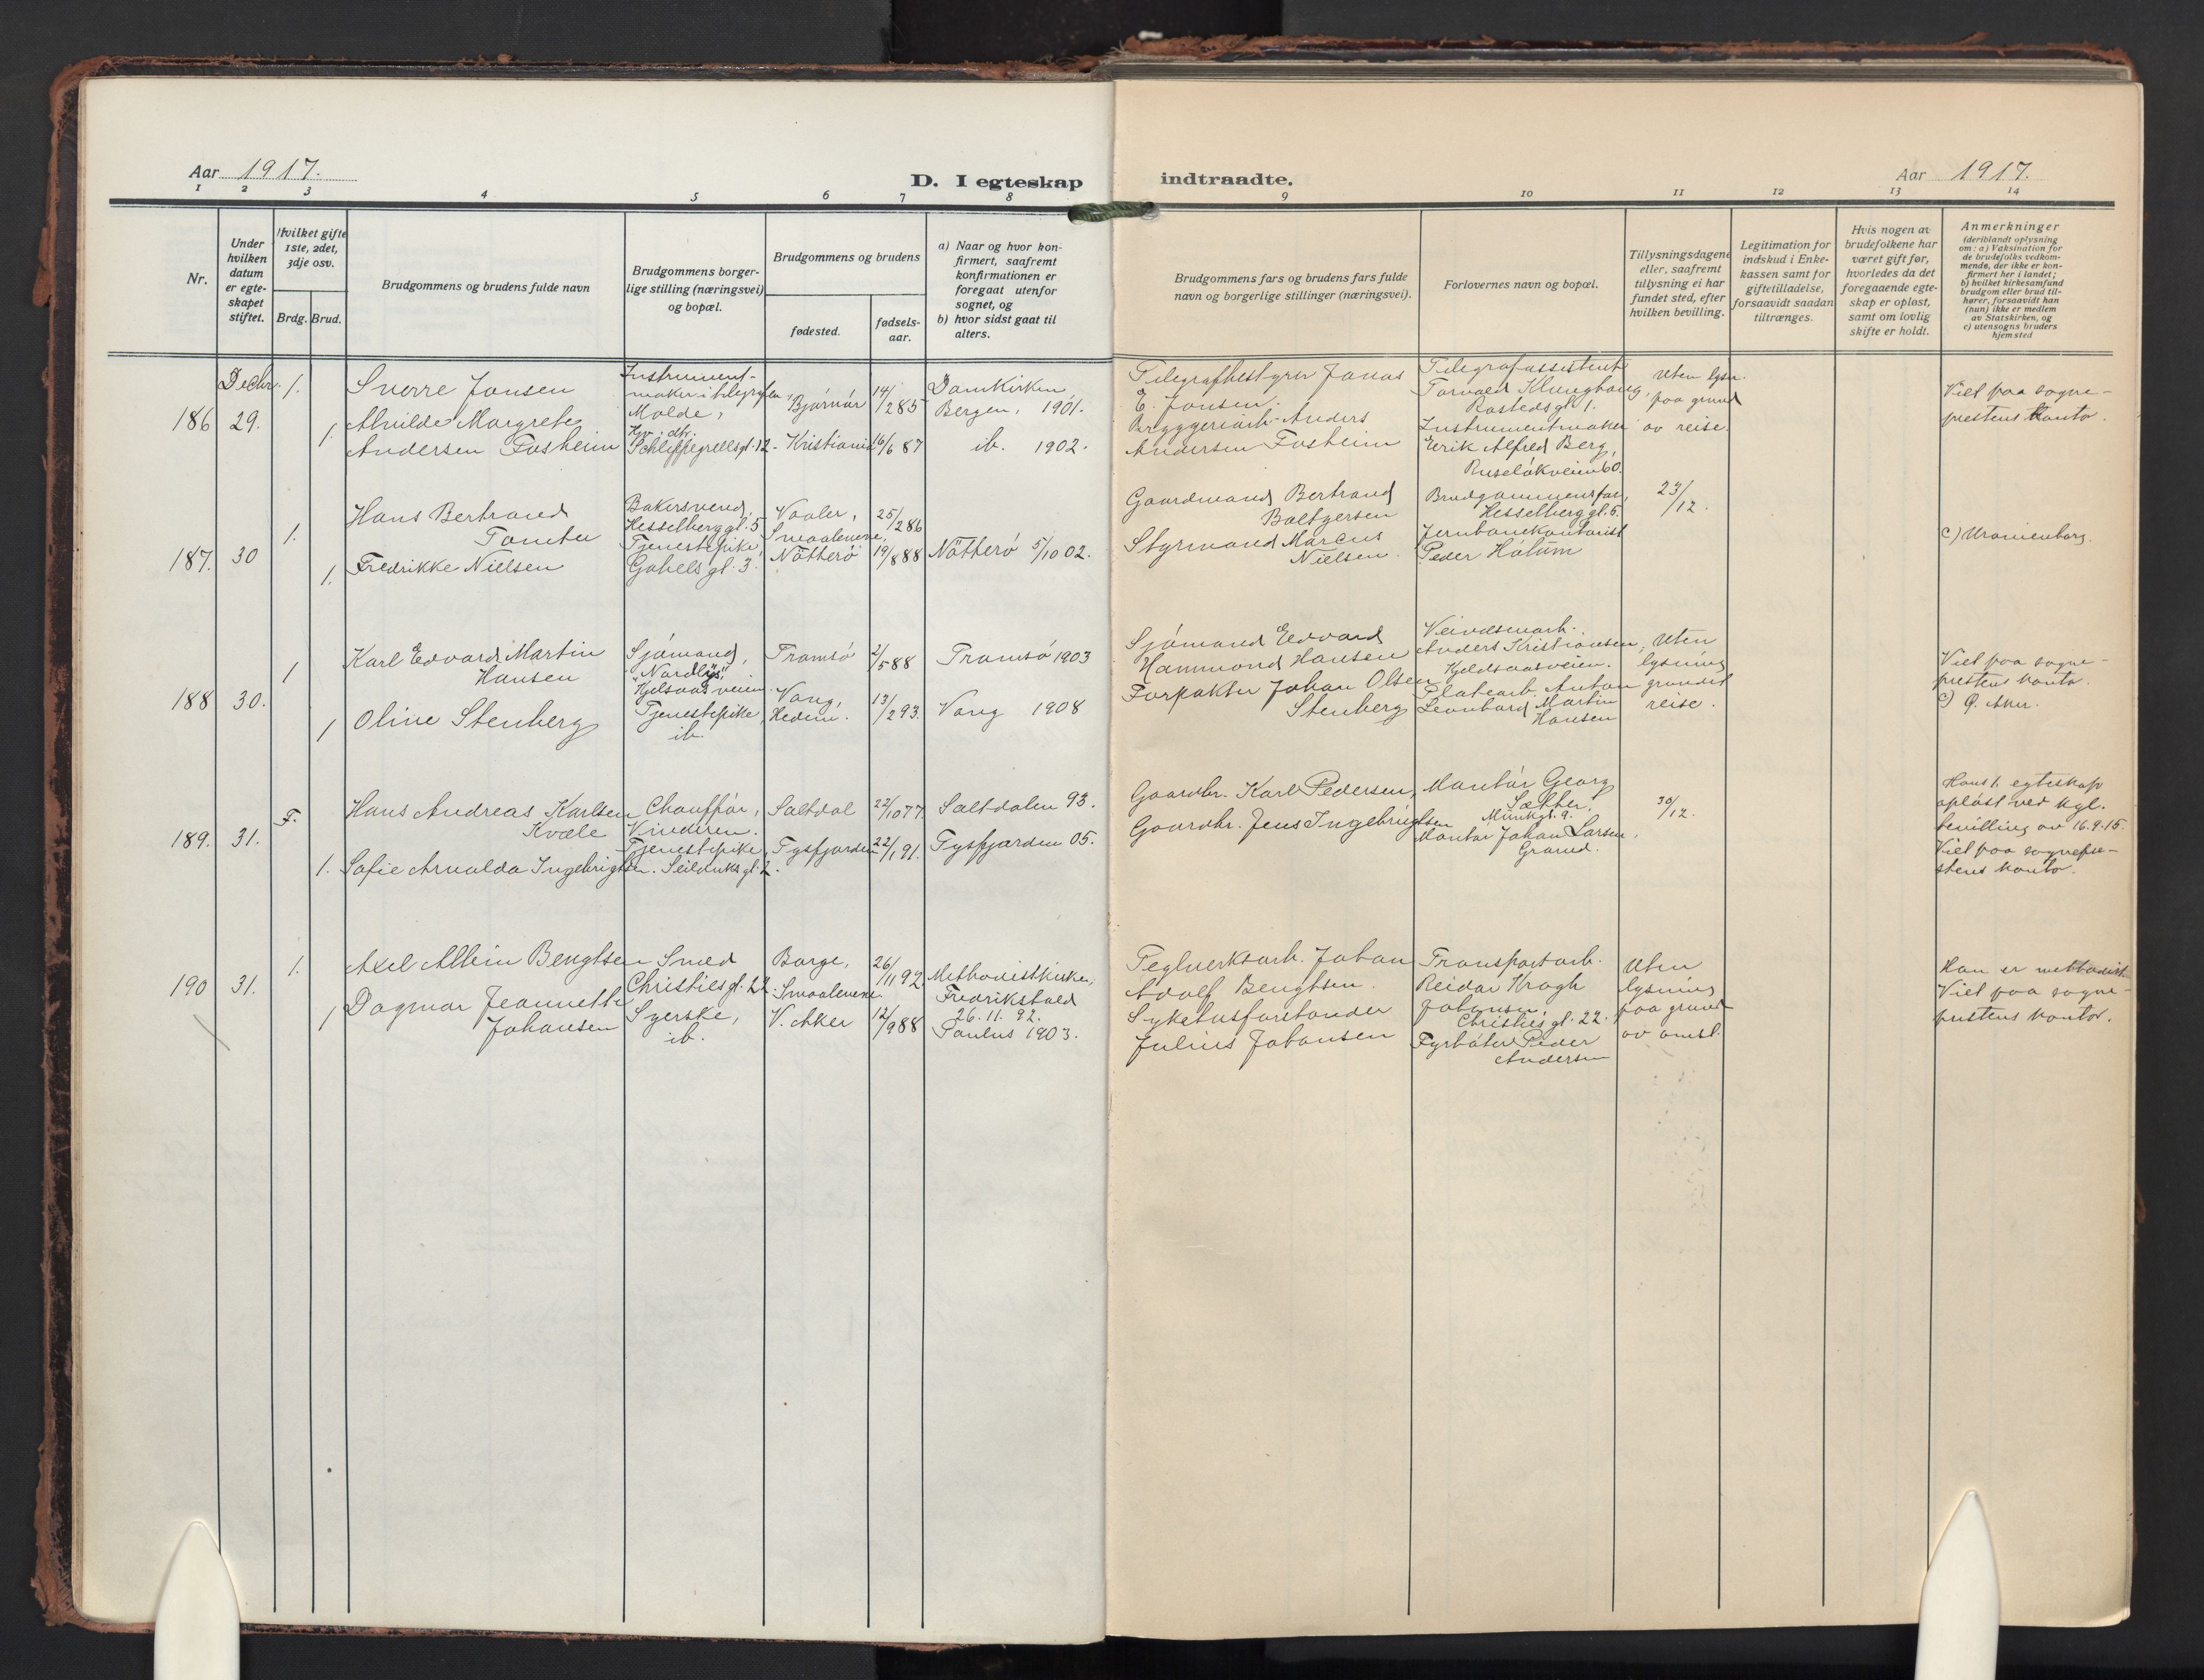 Aar 1917.
D. I egteskap indtraadte.
Aar 1917.
1 2 3 4 5 6 7 8 9 10 11 12 13 14
Nr.
Under hvilken datum er egteskapet stiftet.
Hvilket gifte 1ste, 2det, 3dje osv.
Brdg. Brud.
Brudgommens og brudens fulde navn
Brudgommens borgerlige stilling (næringsvei) og bopæl.
Brudgommens og brudens
fødested.
fødselsaar.
a) Naar og hvor konfirmert, saafremt konfirmationen er foregaat utenfor sognet, og
b) hvor sidst gaat til alters.
Brudgommens fars og brudens fars fulde navn og borgerlige stillinger (næringsvei).
Forlovernes navn og bopæl.
Tillysningsdagene eller, saafremt tillysning ei har fundet sted, efter hvilken bevilling.
Legitimation for indskud i Enkekassen samt for giftetilladelse, forsaavidt saadan tiltrænges.
Hvis nogen av brudefolkene har været gift før, hvorledes da det foregaaende egteskap er opløst, samt om lovlig skifte er holdt.
Anmerkninger
(deriblandt oplysning om: a) Vaksination for de brudefolks vedkommende, der ikke er konfirmert her i landet;
b) hvilket kirkesamfund brudgom eller brud tilhører, forsaavidt han (hun) ikke er medlem av Statskirken, og
c) utensogns bruders hjemsted
186 Decbr. 29.
1. Sverre Jansen
Instrumentmaker i telegrafen, Molde,
14/2 85
Domkirken Bergen, 1901.
1. Margrete Andersen Fosheim
Schleppegrellsgt. 12 - Kristiania 16/6 87
ib. 1902.
Telegrafbestyrer Jonas E. Jansen.
Bryggeriarb. Anders Andersen Fosheim
Telegrafassistent Torvald
Rostedsgt. 1.
Instrumentmaker Erik Alfred Berg,
Ruseløkveien 60.
Uten lysn. paa grund av reise.
Viet paa sogneprestens kontor.
187. 30
1. Hans Bertrand Tomter
Bakersvend, Hesselberg gt. 5
Vaaler, Smaalenene, 25/2 86
1. Fredrikke Nielsen
Tjenestepike, Gabels gt. 3.
Nøtterø 19/8 88 Nøtterø 5/10 02.
Gaardmand Bertrand Baltzersen
Styrmand Marcus Nielsen.
Brudgommens far, Hesselberg gt. 5.
Jernbanekontorist Peder
23/12.
c) Uranienborg.
188 30.
1 Karl Edvard Martin Hansen
Sjømand, "Nordlys", Kjelsaasveien
Tromsø 2/5 88 Tromsø 1903
1 Oline Stenberg
Tjenestepike, ib.
Vang, Hedem. 13/2 93. Vang 1908
Sjømand Edvard Hammond Hansen
Forpakter Johan Olsen Stenberg
Veivæsenarb. Anders Kristiansen, Kjeldsaasveien.
Platearb. Anton Leonhard Martin Hansen
Uten lysning grundet reise.
Viet paa sogneprestens kontor.
c) Ø. Aker.
189. 31.
F. Hans Andreas Karlsen Kvæle
Chauffør, Vinderen.
Saltdal 22/10 77 Saltdalen 93.
1. Sofie Arnalda Ingebrigtsen.
Tjenestepike, Seilduks gt. 2.
Tysfjorden 22/1 91. Tysfjorden 05.
Gaardbr. Karl Pedersen,
Gaardbr. Jens Ingebrigtsen
Montør Georg Sæther, Munkgt. 9.
Montør Johan Larsen, Grorud.
30/12.
Hans 1. egteskap opløst ved kgl. bevilling av 16.9.15.
Viet paa sogneprestens kontor.
190 31.
1. Axel Albin Bengtsen
Smed Christies gt. 22.
Borge, Smaalenene. 26/11 92.
Methodistkirken, Fredrikstad 26.11.92.
1 Dagmar Jeannette Johansen
Syerske, ib.
V. Aker 12/9 88 Paulus 1903.
Teglverksarb. Johan Adolf Bengtsen.
Sykehusforstander Julius Johansen
Transportarb. Reidar Krogh Johansen, Christies gt. 22.
Fyrbøter Peder Andersen
Uten lysning paa grund av omst.
Han er methodist.
Viet paa sogneprestens kontor.